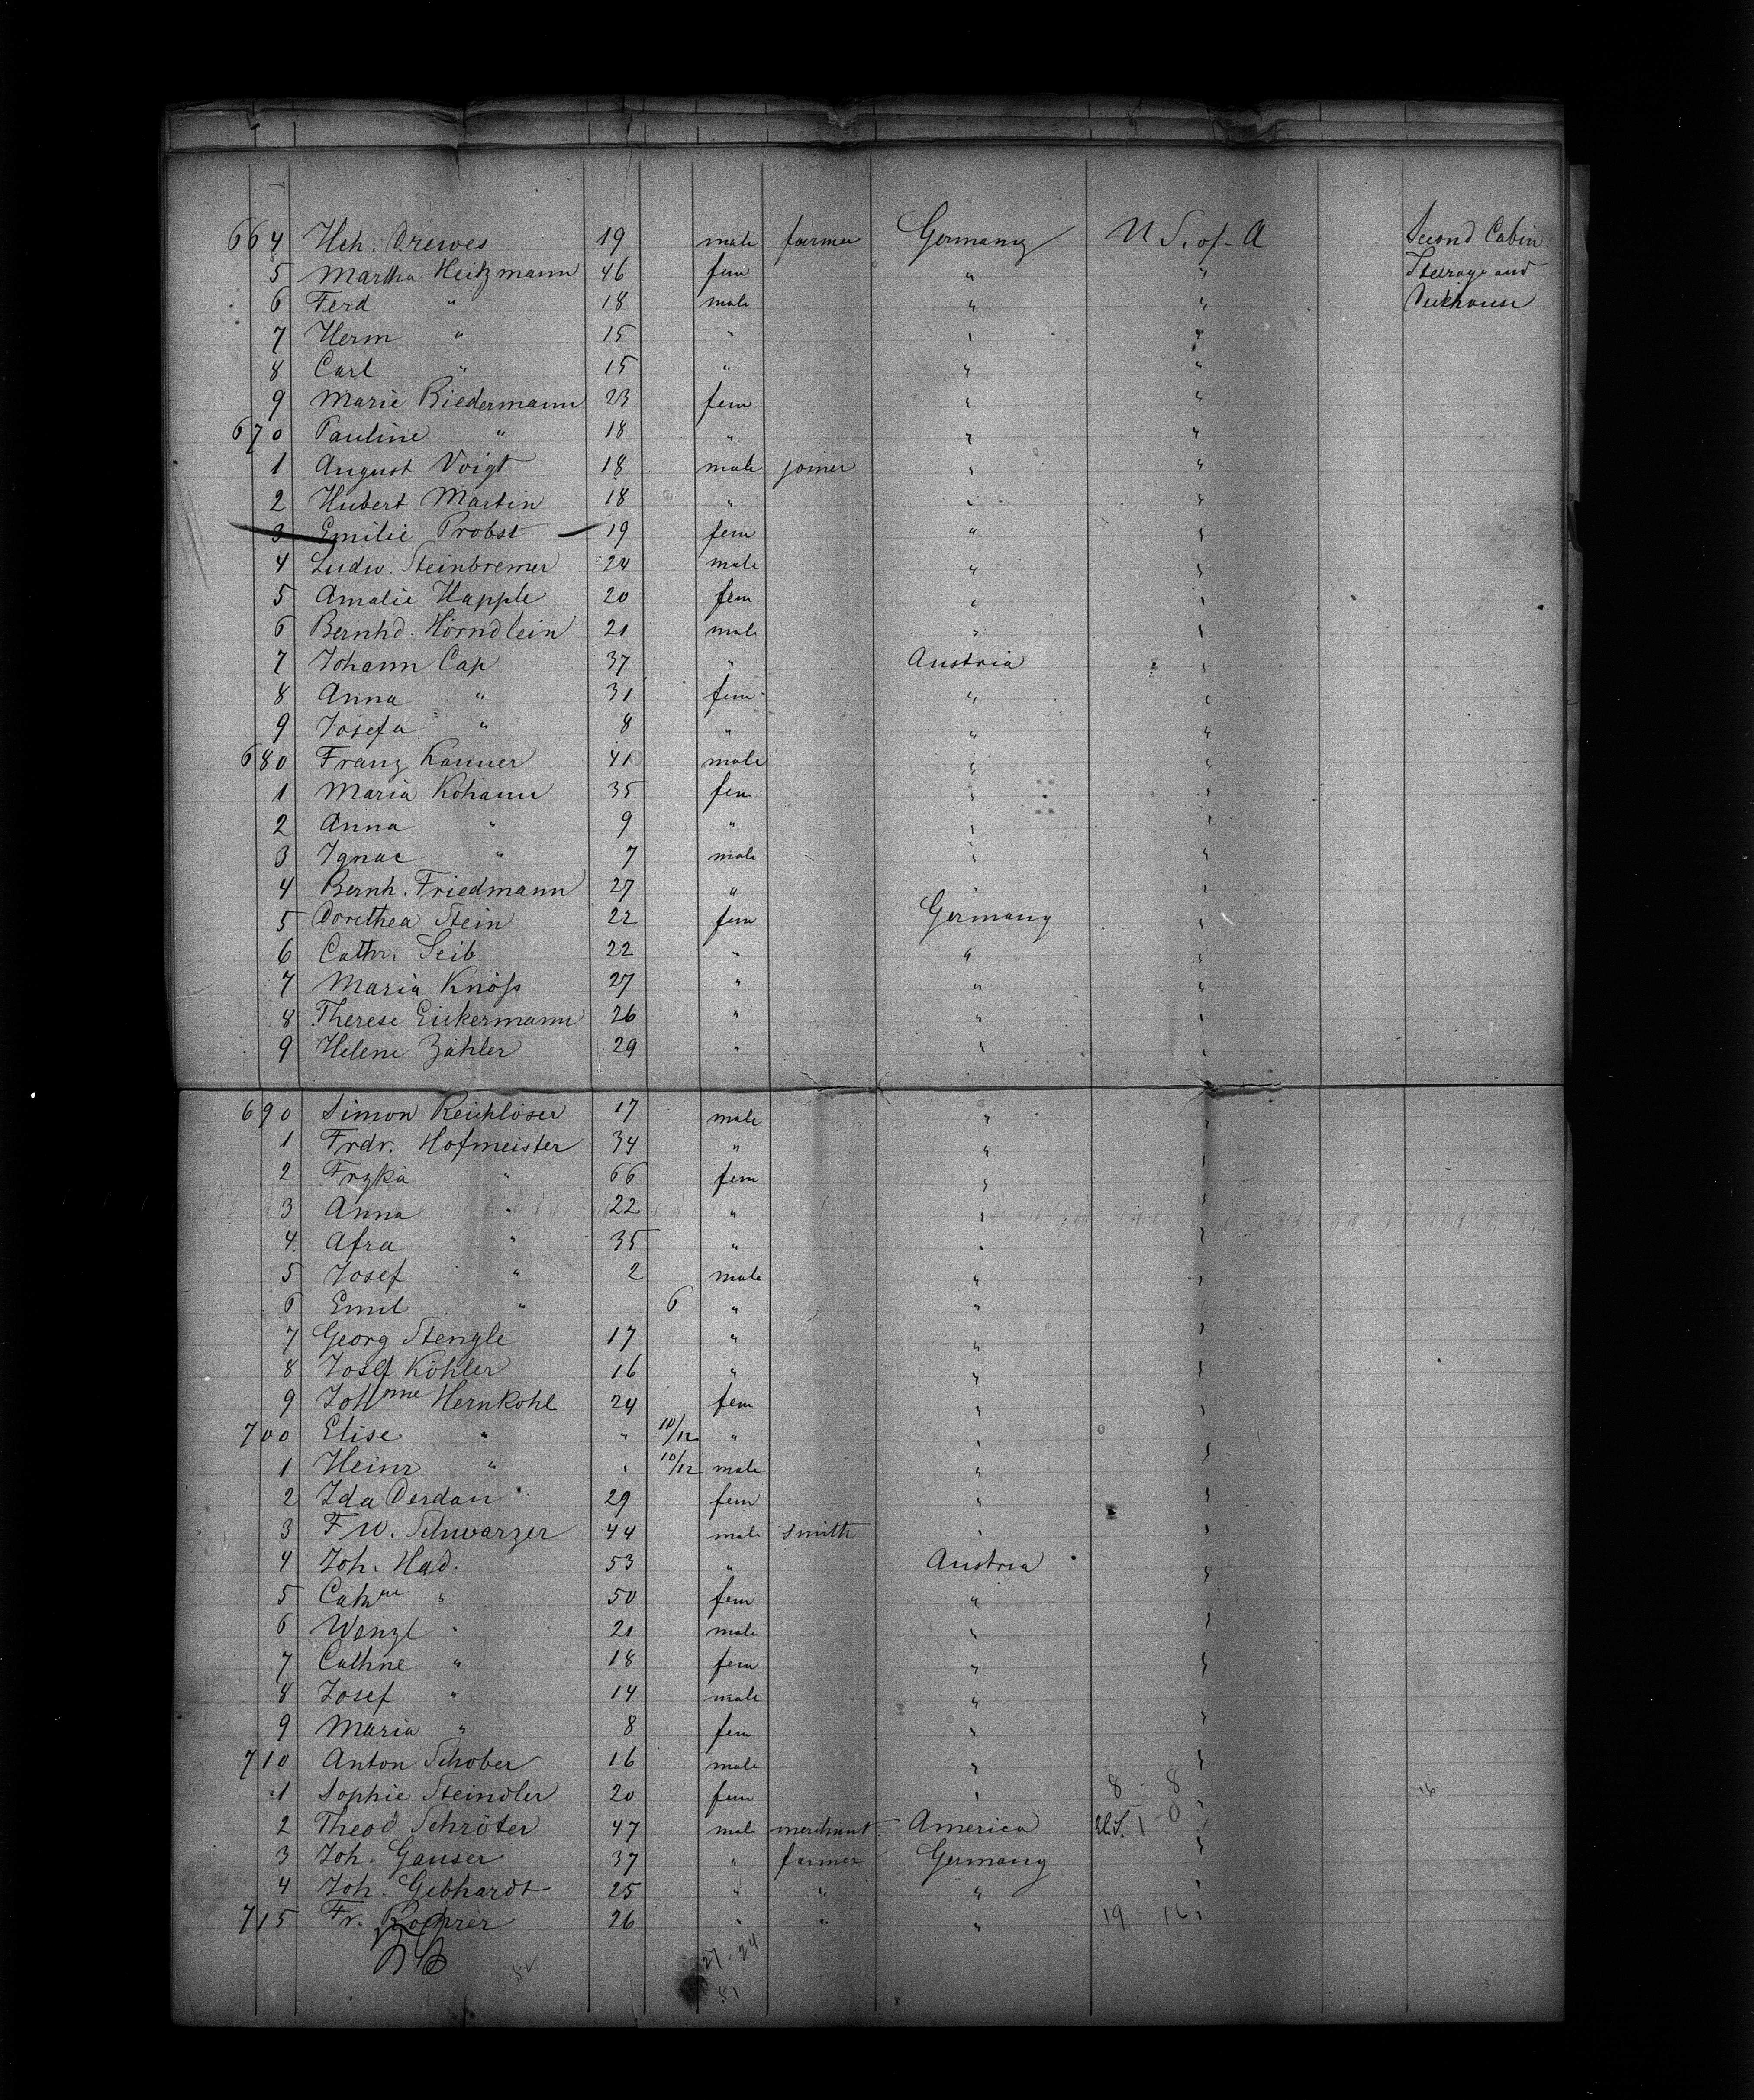 664 Hch. Drewes 19 male farmer Germany U S. of A Second Cabin
5 Martha Heitzmann 46 fem " " Steerage and
6 Ferd " 18 male " " Deckhouse
7 Herm " 15 " " "
8 Carl " 15 " " "
9 Marie Biedermann 23 fem " "
670 Pauline " 18 " " "
1 August Voigt 18 male joiner " "
2 Hubert Martin 18 " " "
3 Emilie Probst 19 fem " "
4 Ludw. Steinbremer 24 male " "
5 Amalie Happle 20 fem " "
6 Bernhd. Hörndlein 21 male " "
7 Johann Cap 37 " Austria "
8 Anna " 31 fem " "
9 Josefa " 8 " " "
680 Franz 41 male " "
1 Maria 35 fem " "
2 Anna " 9 " " "
3 Ignac " 7 male " "
4 Bernh. Friedmann 27 " " "
5 Dorethea Stein 22 fem Germany "
6 Cathr. Seib 22 " " "
7 Maria Knöss 27 " " "
8 Therese Eickermann 26 " " "
9 Helene Zähler 29 " " "
690 Simon 17 male " "
1 Frdr. Hofmeister 34 " " "
2 Frzka " 66 fem " "
3 Anna " 22 " " "
4 Afra " 35 " " "
5 Josef " 2 male " "
6 Emil " 6 " " "
7 Georg Stengle 17 " " "
8 Josef Köhler 16 " " "
9 Johnne Hernkohl 24 fem " "
700 Elise " " 10/12 " " "
1 Heinr " " 10/12 male " "
2 Ida Derdau 29 fem " "
3 F W. Schwarzer 44 male smith " "
4 Joh. Had. 53 " Austria "
5 " 50 fem " "
6 Wenzl " 21 male " "
7 Cathne " 18 fem " "
8 Josef " 14 male " "
9 Maria " 8 fem " "
710 Anton Schober 16 male " "
1 Sophie Steindler 20 fem " 8 - 8 " 16
2 Theod Schröter 47 male merchant America U.S. 1 - 0 "
3 Joh. Ganser 37 " farmer Germany "
4 Joh. Gebhardt 25 " " " "
715 Fr. Rohrer 26 " " " 19 - 16 "
27-24
51